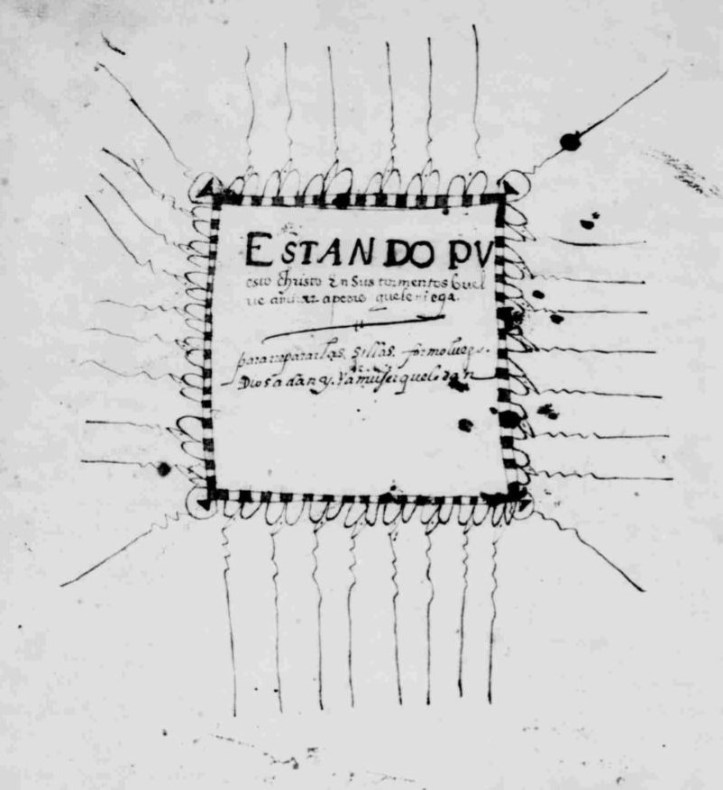 ESTANDO PV
esto christo En Sus tormentos buel
ue amirar apedro quele niega.
para reparar las sillas formo luego
Dios a adan y. Ya mujer quele dan